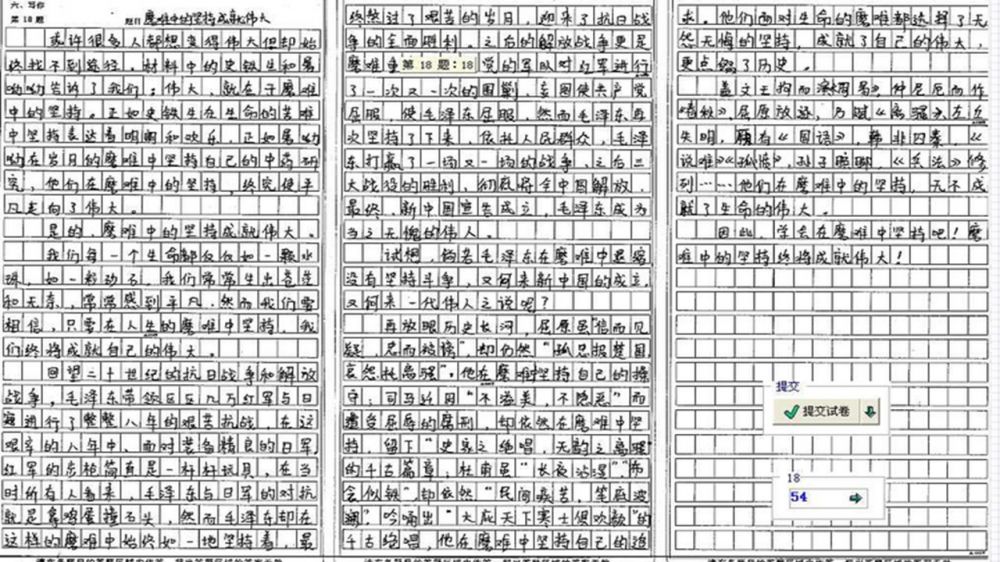 六、写作
第18题 题目 磨难中的坚持成就伟大
或许很多人都想变得伟大但却始
终找不到途径。材料中的史铁生和屠
呦呦告诉了我们：伟大，就在于磨难
中的坚持。正如史铁生在生命的苦难
中坚持表达着明朗和欢乐，正如屠呦
呦在岁月的磨难中坚持自己的中药研
究，他们在磨难中的坚持，终究使平
凡走向了伟大。
是的，磨难中的坚持成就伟大。
我们每一个生命都仅仅如一颗水
珠，如一彩动石，我们常常生出苍茫
和无奈，常常感到平凡。然而我们要
相信，只要在人生的磨难中坚持，我
们终将成就自己的伟大。
回望二十世纪的抗日战争和解放
战争，毛泽东带领区区几万红军与日
寇进行了整整八年的艰苦抗战，在这
艰辛的八年中，面对装备精良的日军，
红军的步枪简直是一杆杆玩具，在当
时所有人看来，毛泽东与日军的对抗
就是拿鸡蛋撞石头，然而毛泽东却在
这样的磨难中始终如一地坚持着，最
终熬过了艰苦的岁月，迎来了抗日战
争的全面胜利。之后的解放战争更是
磨难重 第 18 题：18 党的军队对红军进行
了一次又一次的围剿，妄图使共产党
屈服，使毛泽东屈服，然而毛泽东再
次坚持了下来，依托人民群众，毛泽
东打赢了一场又一场的战争，之后三
大战役的胜利，彻底将全中国解放，
最终，新中国宣告成立，毛泽东成为
当之无愧的伟人。
试想，倘若毛泽东在磨难中退缩，
没有坚持斗争，又何来新中国的成立，
又何来一代伟人之说呢？
再放眼历史长河，屈原虽“信而见
疑，忠而被谤”，却仍然“孤忠报楚国，
哀怨托离骚”。他在磨难中坚持自己的操
守；司马迁因“不溢美，不隐恶”而
遭受屈辱的腐刑，却依然在磨难中坚
持，留下“史家之绝唱，无韵之离骚”
的千古篇章；杜甫虽“长夜沾湿”“布
衾似铁”，却依然“民间疾苦，笔底波
澜”，吟诵出“大庇天下寒士俱欢颜”的
千古绝唱，他在磨难中坚持自己的追
求。他们面对生命的磨难都选择了无
怨无悔的坚持，成就了自己的伟大，
更点缀了历史。
盖文王拘而演周易，仲尼厄而作
《春秋》，屈原放逐，乃赋《离骚》，左丘
失明，厥有《国语》，韩非囚秦，《
说难》《孤愤》，孙子膑脚，《兵法》修
列……他们在磨难中的坚持，无不成
就了生命的伟大。
因此，学会在磨难中坚持吧！磨
难中的坚持终将成就伟大！
提交
提交试卷
18
54